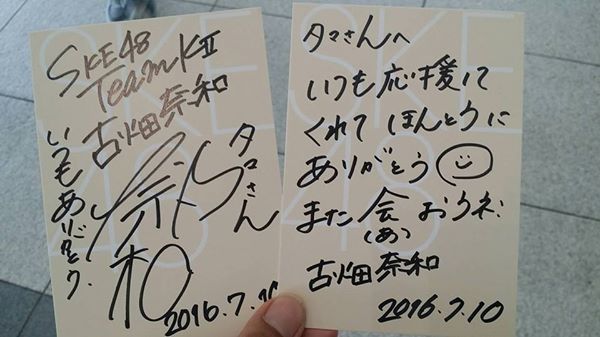 SKE48
Team KⅡ
古畑奈和
タマさん
いつもありがとう.
奈和
2016.7.10
タマさんへ
いつも応援して
くれてほんとうに
ありがとう
また会おうネ.
(あ)
古畑奈和
2016.7.10
SKE
48
SKE
48